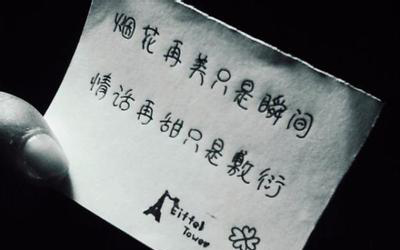 烟花再美只是瞬间
情话再甜只是敷衍
Eiffel
Tower